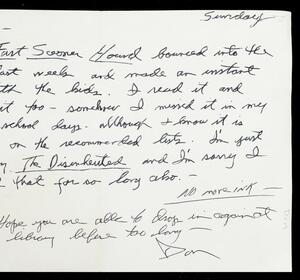 Sunday
Fast Sooner Hound bounced into the
last weeks and made an instant
with the kids. I read it and
it too - somehow I missed it in my
school days. although I know it is
on the recommended lists. I'm just
The Disinherited and I'm sorry I
that for so long also. -
NO more ink -
Hope you are able to drop in against
library before too long -
Don